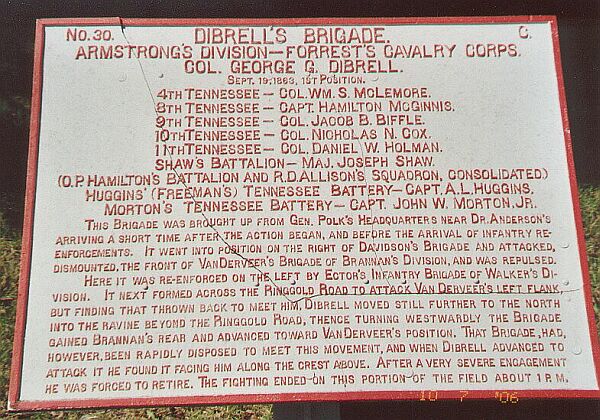 No. 30. DIBRELL'S BRIGADE. C.
ARMSTRONG'S DIVISION—FORREST'S CAVALRY CORPS.
COL. GEORGE G. DIBRELL.
SEPT. 19, 1863, 1ST POSITION.
4TH TENNESSEE — COL. WM. S. MCLEMORE.
8TH TENNESSEE — CAPT. HAMILTON MCGINNIS.
9TH TENNESSEE — COL. JACOB B. BIFFLE.
10TH TENNESSEE — COL. NICHOLAS N. COX.
11TH TENNESSEE — COL. DANIEL W. HOLMAN.
SHAW'S BATTALION — MAJ. JOSEPH SHAW.
(O.P. HAMILTON'S BATTALION AND R.D. ALLISON'S SQUADRON, CONSOLIDATED)
HUGGINS' (FREEMAN'S) TENNESSEE BATTERY — CAPT. A.L. HUGGINS.
MORTON'S TENNESSEE BATTERY — CAPT. JOHN W. MORTON, JR.
THIS BRIGADE WAS BROUGHT UP FROM GEN. POLK'S HEADQUARTERS NEAR DR. ANDERSON'S
ARRIVING A SHORT TIME AFTER THE ACTION BEGAN, AND BEFORE THE ARRIVAL OF INFANTRY RE-
ENFORCEMENTS. IT WENT INTO POSITION ON THE RIGHT OF DAVIDSON'S BRIGADE AND ATTACKED,
DISMOUNTED, THE FRONT OF VAN DERVEER'S BRIGADE OF BRANNAN'S DIVISION, AND WAS REPULSED.
HERE IT WAS RE-ENFORCED ON THE LEFT BY ECTOR'S INFANTRY BRIGADE OF WALKER'S DI-
VISION. IT NEXT FORMED ACROSS THE RINGGOLD ROAD TO ATTACK VAN DERVEER'S LEFT FLANK,
BUT FINDING THAT THROWN BACK TO MEET HIM, DIBRELL MOVED STILL FURTHER TO THE NORTH
INTO THE RAVINE BEYOND THE RINGGOLD ROAD, THENCE TURNING WESTWARDLY THE BRIGADE
GAINED BRANNAN'S REAR AND ADVANCED TOWARD VAN DERVEER'S POSITION. THAT BRIGADE, HAD,
HOWEVER, BEEN RAPIDLY DISPOSED TO MEET THIS MOVEMENT, AND WHEN DIBRELL ADVANCED TO
ATTACK IT HE FOUND IT FACING HIM ALONG THE CREST ABOVE. AFTER A VERY SEVERE ENGAGEMENT
HE WAS FORCED TO RETIRE. THE FIGHTING ENDED ON THIS PORTION OF THE FIELD ABOUT 1 P.M.
10 7 '06